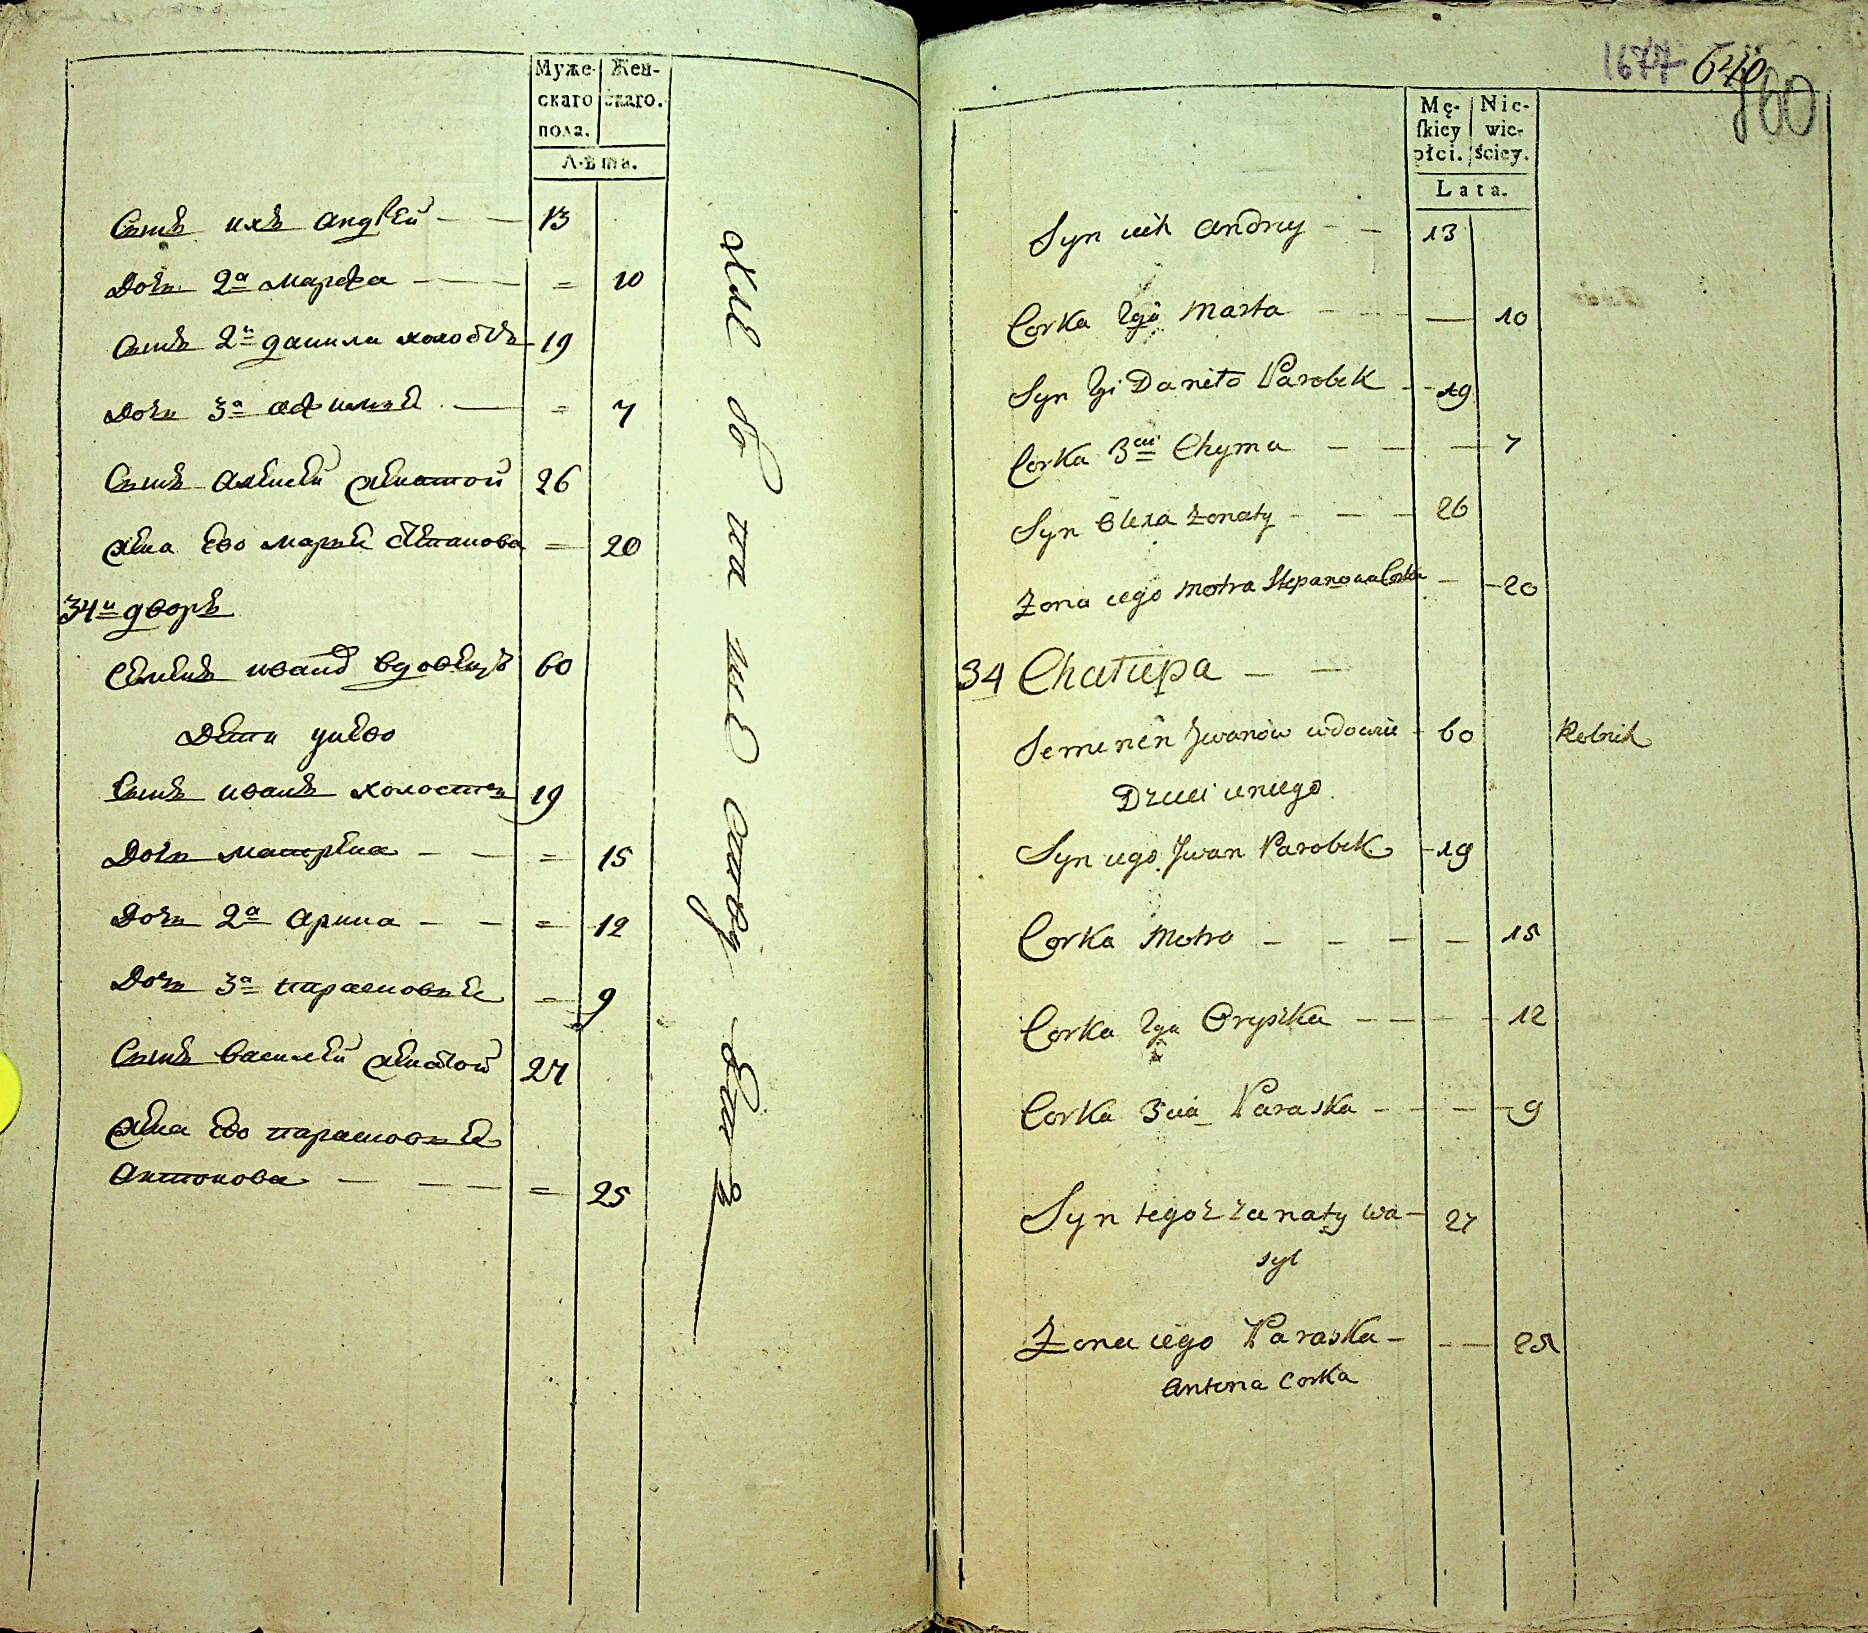 Муже- Жен-
скаго скаго.
пола.
Лѣта.
Сынъ ихъ андрей — — 13
Дочь 2а марфа — — = 10
Сынъ 2й данила холостъ 19
Дочь 3а афимия — = 7
Сынъ алексей женатой 26
Жена ево марья степанова = 20
34й дворъ
Семенъ иванов вдовецъ 60
Дети у нево
Сынъ иванъ холостой 19
Дочь матрена — — = 15
Дочь 2а арина — — = 12
Дочь 3а парасковья = 9
Сынъ василей женатой 27
Жена ево парасковья
Антонова — — — = 25
1677 640
860
Mę- Nie-
skiey wie-
płci. ściey.
Lata.
Syn ich Andrey — — 13
Corka 2ga Marta — — — 10
Syn 2gi Daniło Parobek — 19
Corka 3cia Chyma — — — 7
Syn Olexa Żonaty — — — 26
Zona iego Motra Stepanowa Corka — — 20
34 Chałupa — —
Semen Iwanow wdowiec — 60 Rolnik
Dzieci u niego
Syn iego Iwan Parobek — 19
Corka Motra — — — — 15
Corka 2ga Oryszka — — — — 12
Corka 3cia Paraska — — — — 9
Syn tegoż żonaty Wa- 27
syl
Zona iego Paraska — — — 25
Antona Corka